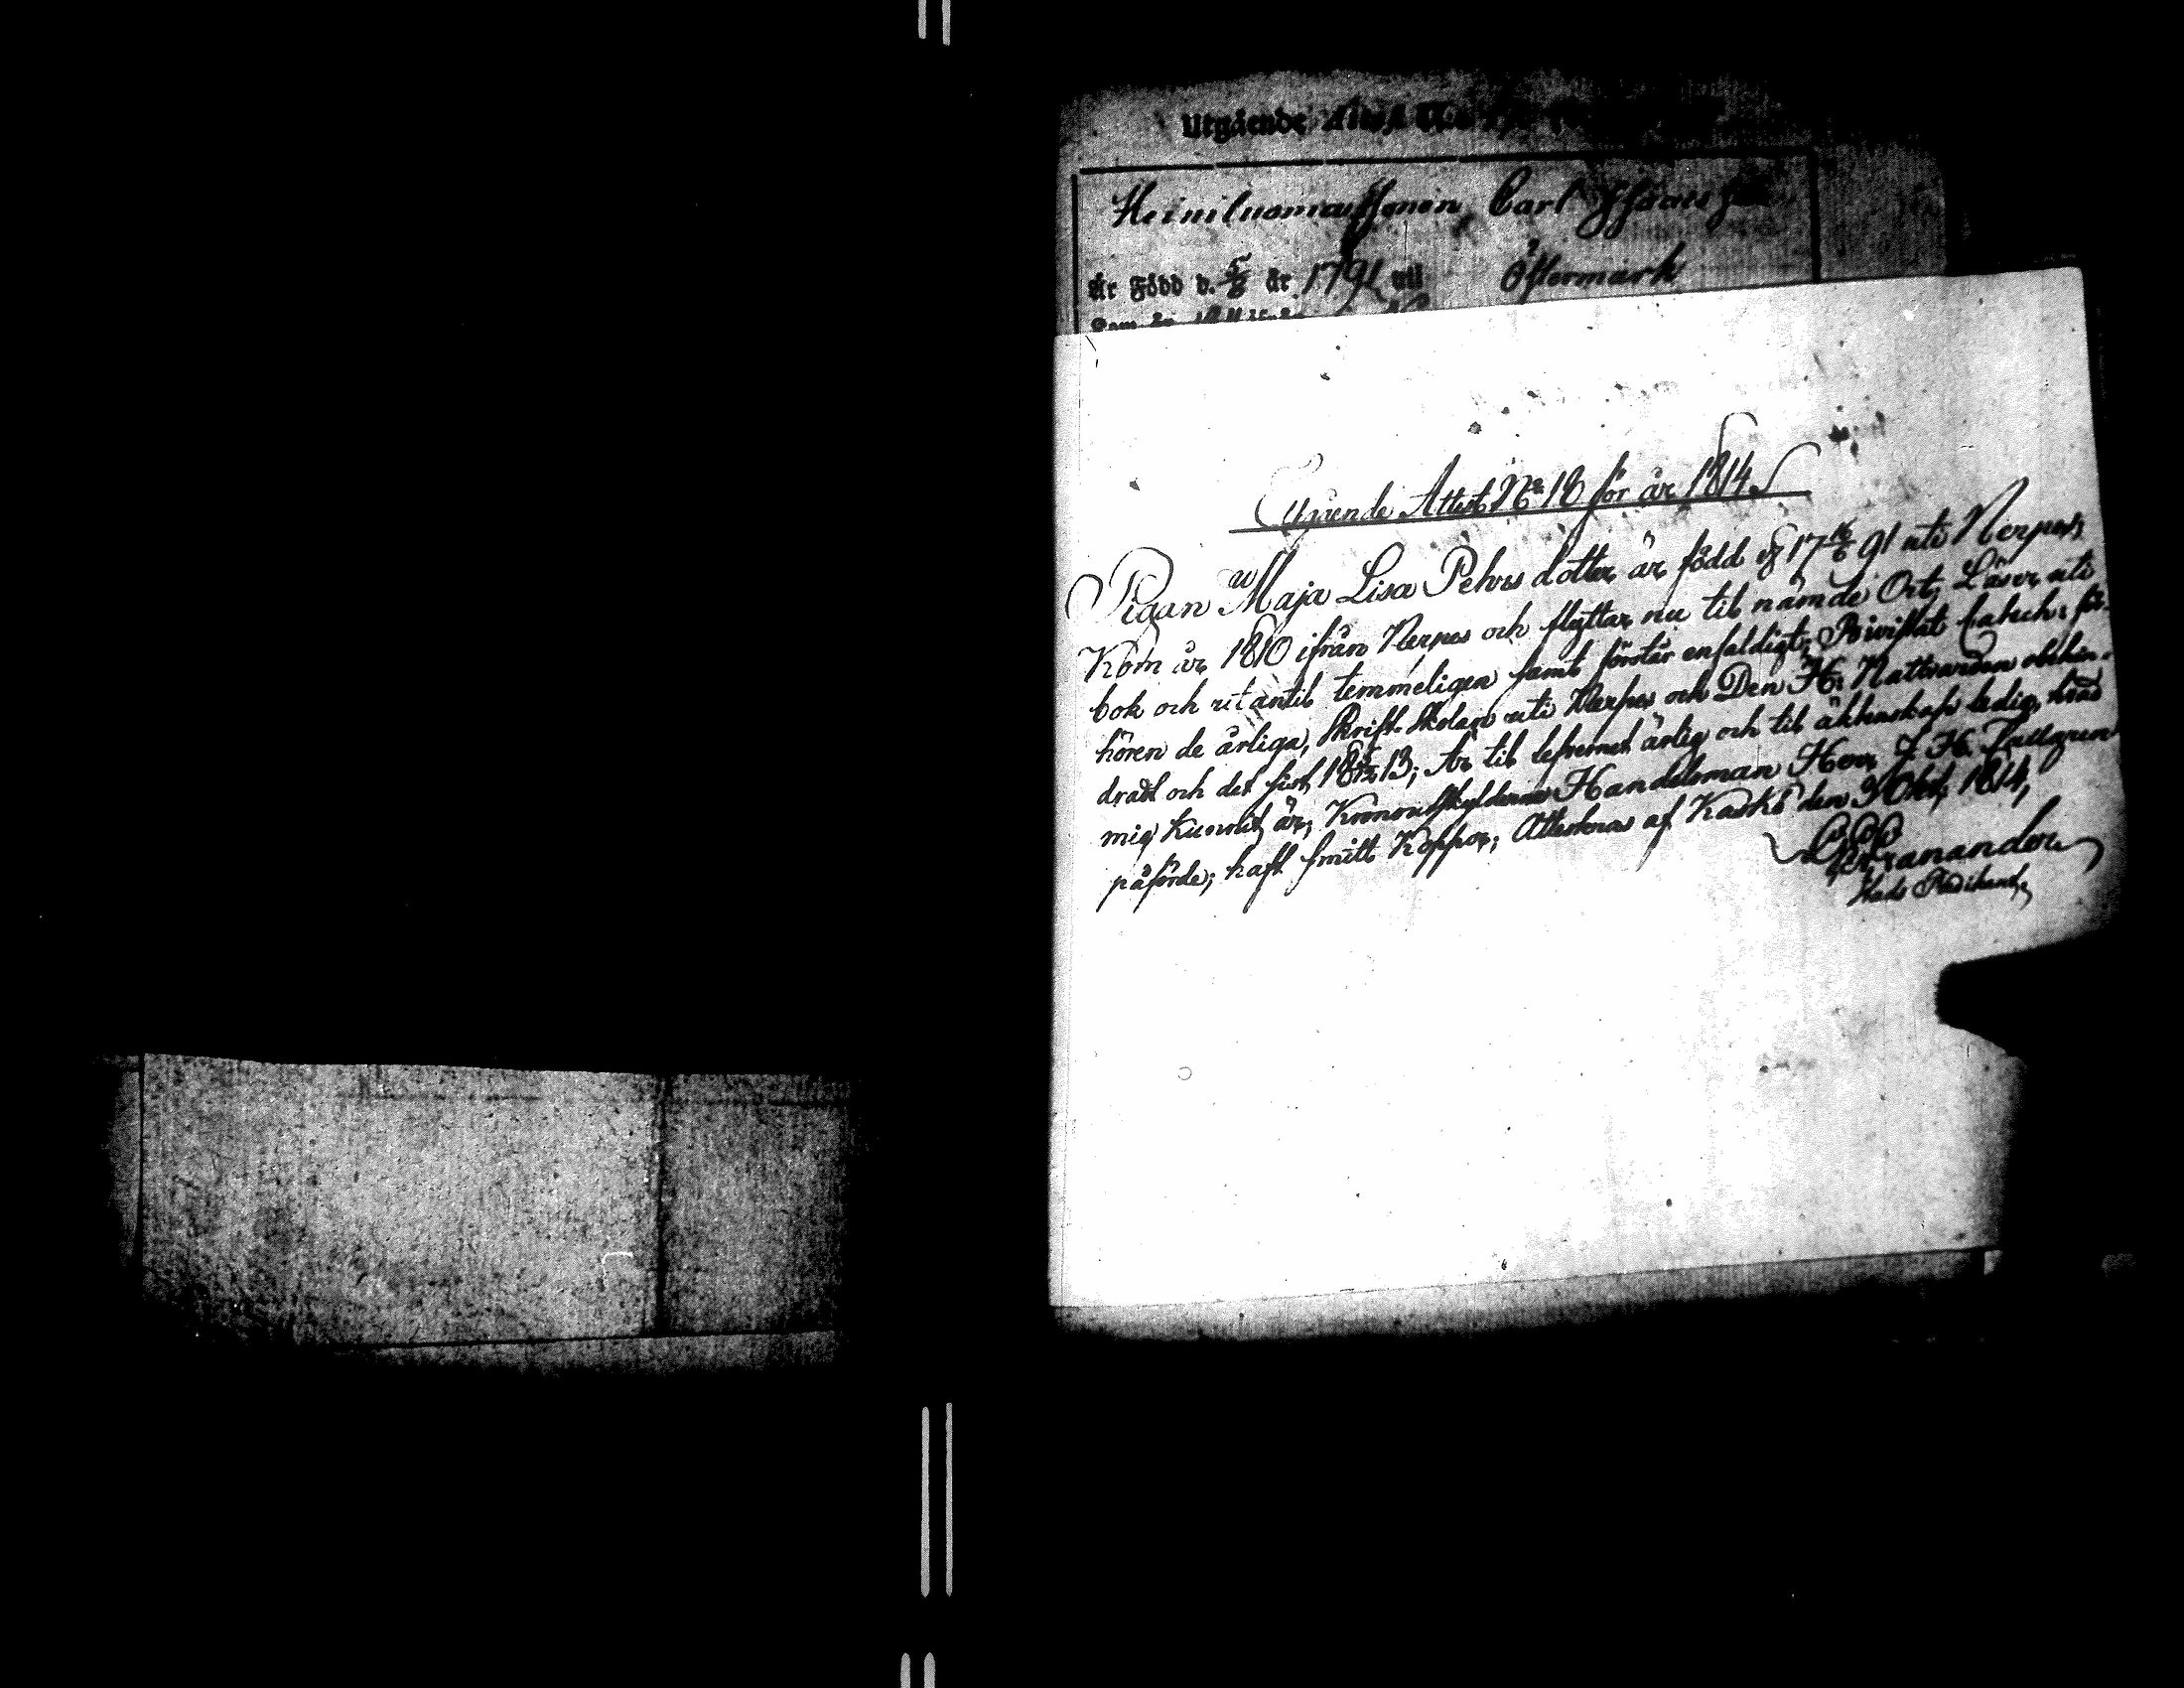 Utgående Attest
Heiniluoma Carl
Är Född d. 5/8 år 1791 uti Östermark
Utgående Attest No 18 för år 1814
Pigan Maja Lisa Pehrs dotter är född 17 16/6 91 uti Nerpes,
Kom år 1810 ifrån Nerpes och flyttar nu til nämde Ort; Läser uti
bok och utantil temmeligen samt förstår enfaldigt; Bivistat Catech: för-
hören de årliga, Skrift-Skolan uti Nerpes och Den H: Nattvarden obehin-
dradt och det sist 18 13; Är til lefvernet ärlig och til äktenskap ledig, hvad
mig kunnit är; Kronoutskylderna Handelsman Herr J. H.
påförde; haft smitt Koppor; Attesteras af Kaskö den 3 Okt. 1814,
Granander
Stads Prädikant